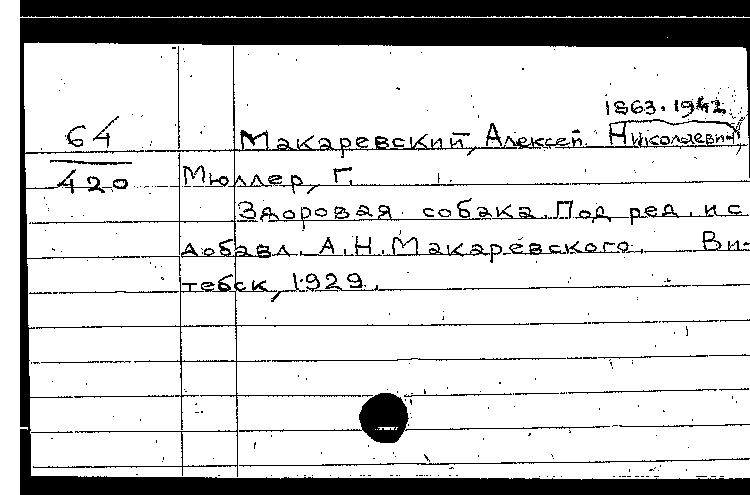 1863.1942
64
420
Макаревский, Алексей Николаевич
Мюллер, Г.
Здоровая собака. Под ред. и с
добавл. А.Н. Макаревского. Ви-
тебск, 1929.